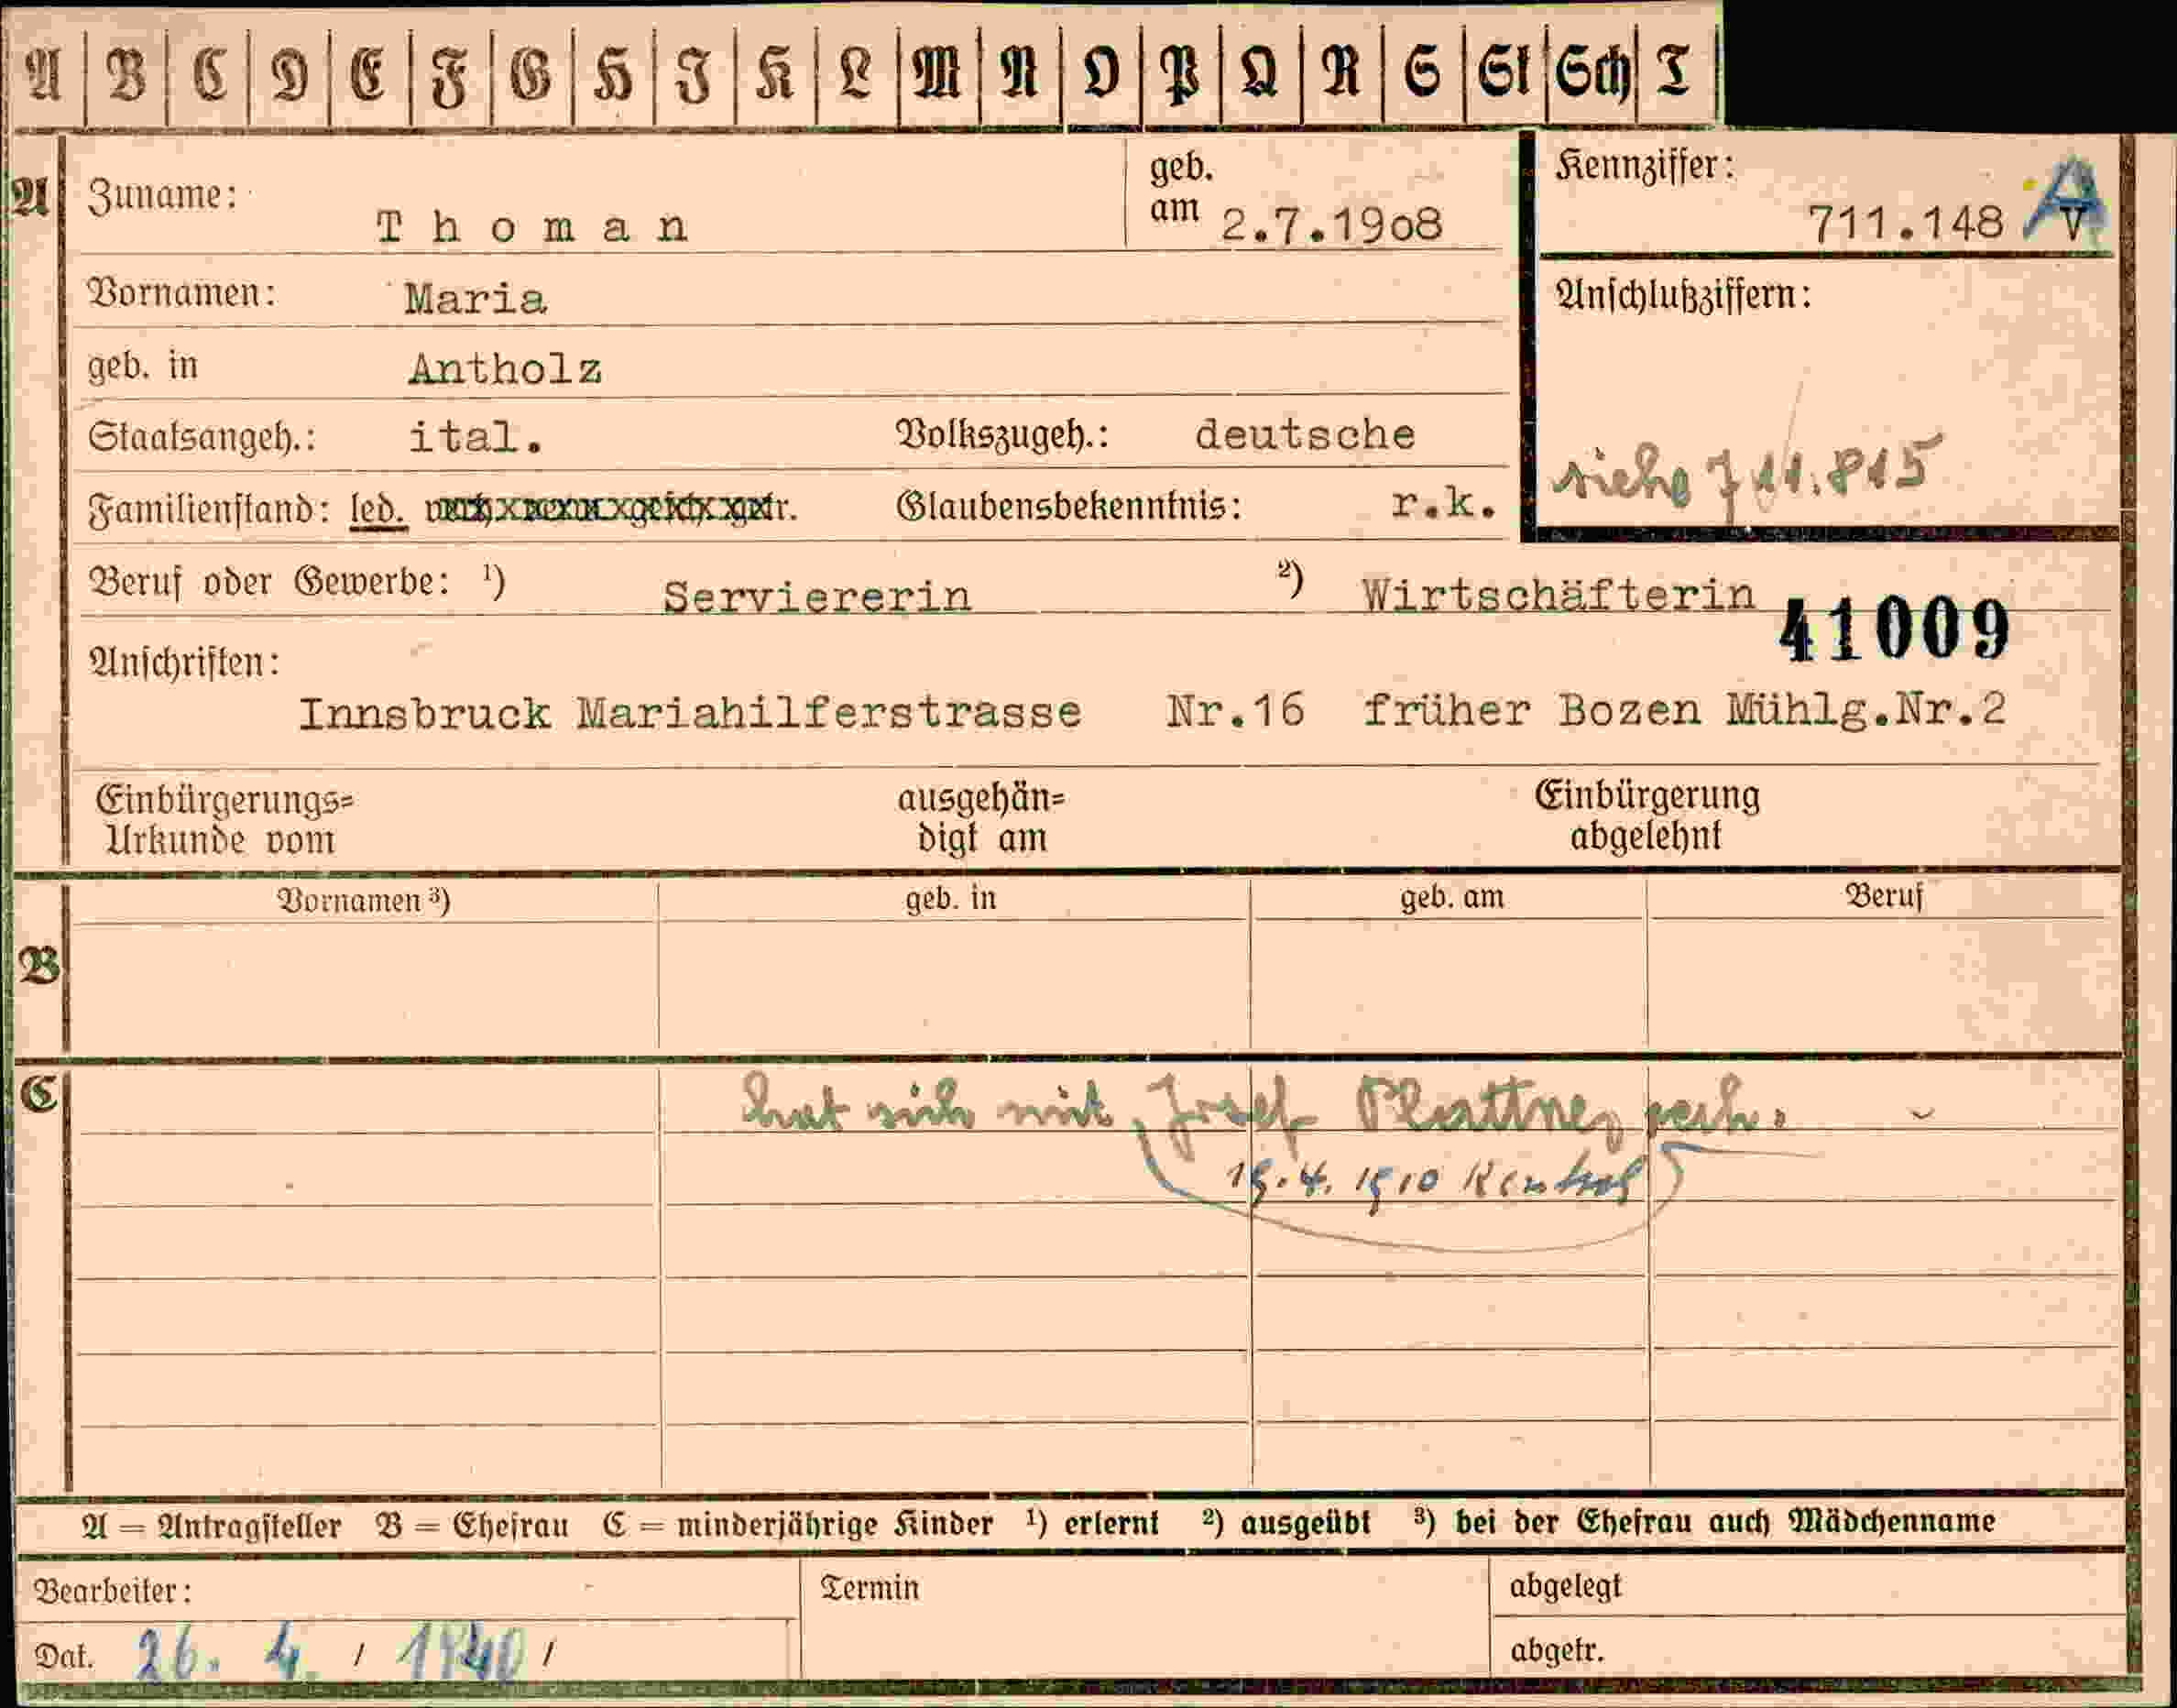 A B C D E F G H I K L M N O P Q R S St Sch T
A Zuname: Thoman geb. am 2.7.1908 Kennziffer: 711.148 A V
Vornamen: Maria Anschlußziffern:
geb. in Antholz
Staatsangeh.: ital. Volkszugeh.: deutsche siehe 711.815
Familienstand: led. getr. Glaubensbekenntnis: r.k.
Beruf oder Gewerbe: 1) Serviererin 2) Wirtschäfterin
41009
Anschriften:
Innsbruck Mariahilferstrasse Nr.16 früher Bozen Mühlg.Nr.2
Einbürgerungs= ausgehän= Einbürgerung
Urkunde vom digt am abgelehnt
Vornamen 3) geb. in geb. am Beruf
B
C hat sich mit Josef Plattner verh.
19.4.1910
A = Antragsteller B = Ehefrau C = minderjährige Kinder 1) erlernt 2) ausgeübt 3) bei der Ehefrau auch Mädchenname
Bearbeiter: Termin abgelegt
Dat. 26. 4. / 1940 / abgetr.